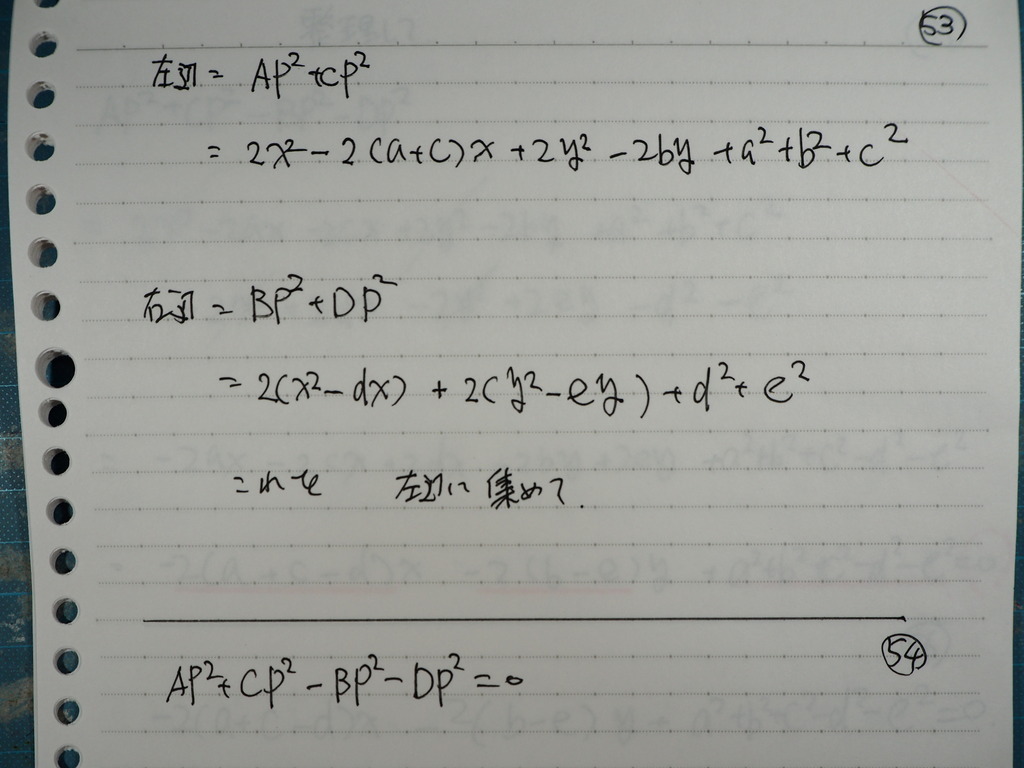 53
左辺 = AP²+CP²
= 2x²-2(a+c)x+2y²-2by+a²+b²+c²
右辺 = BP²+DP²
= 2(x²-dx)+2(y²-ey)+d²+e²
これを 左辺に 集めて.
54
AP²+CP²-BP²-DP²=0